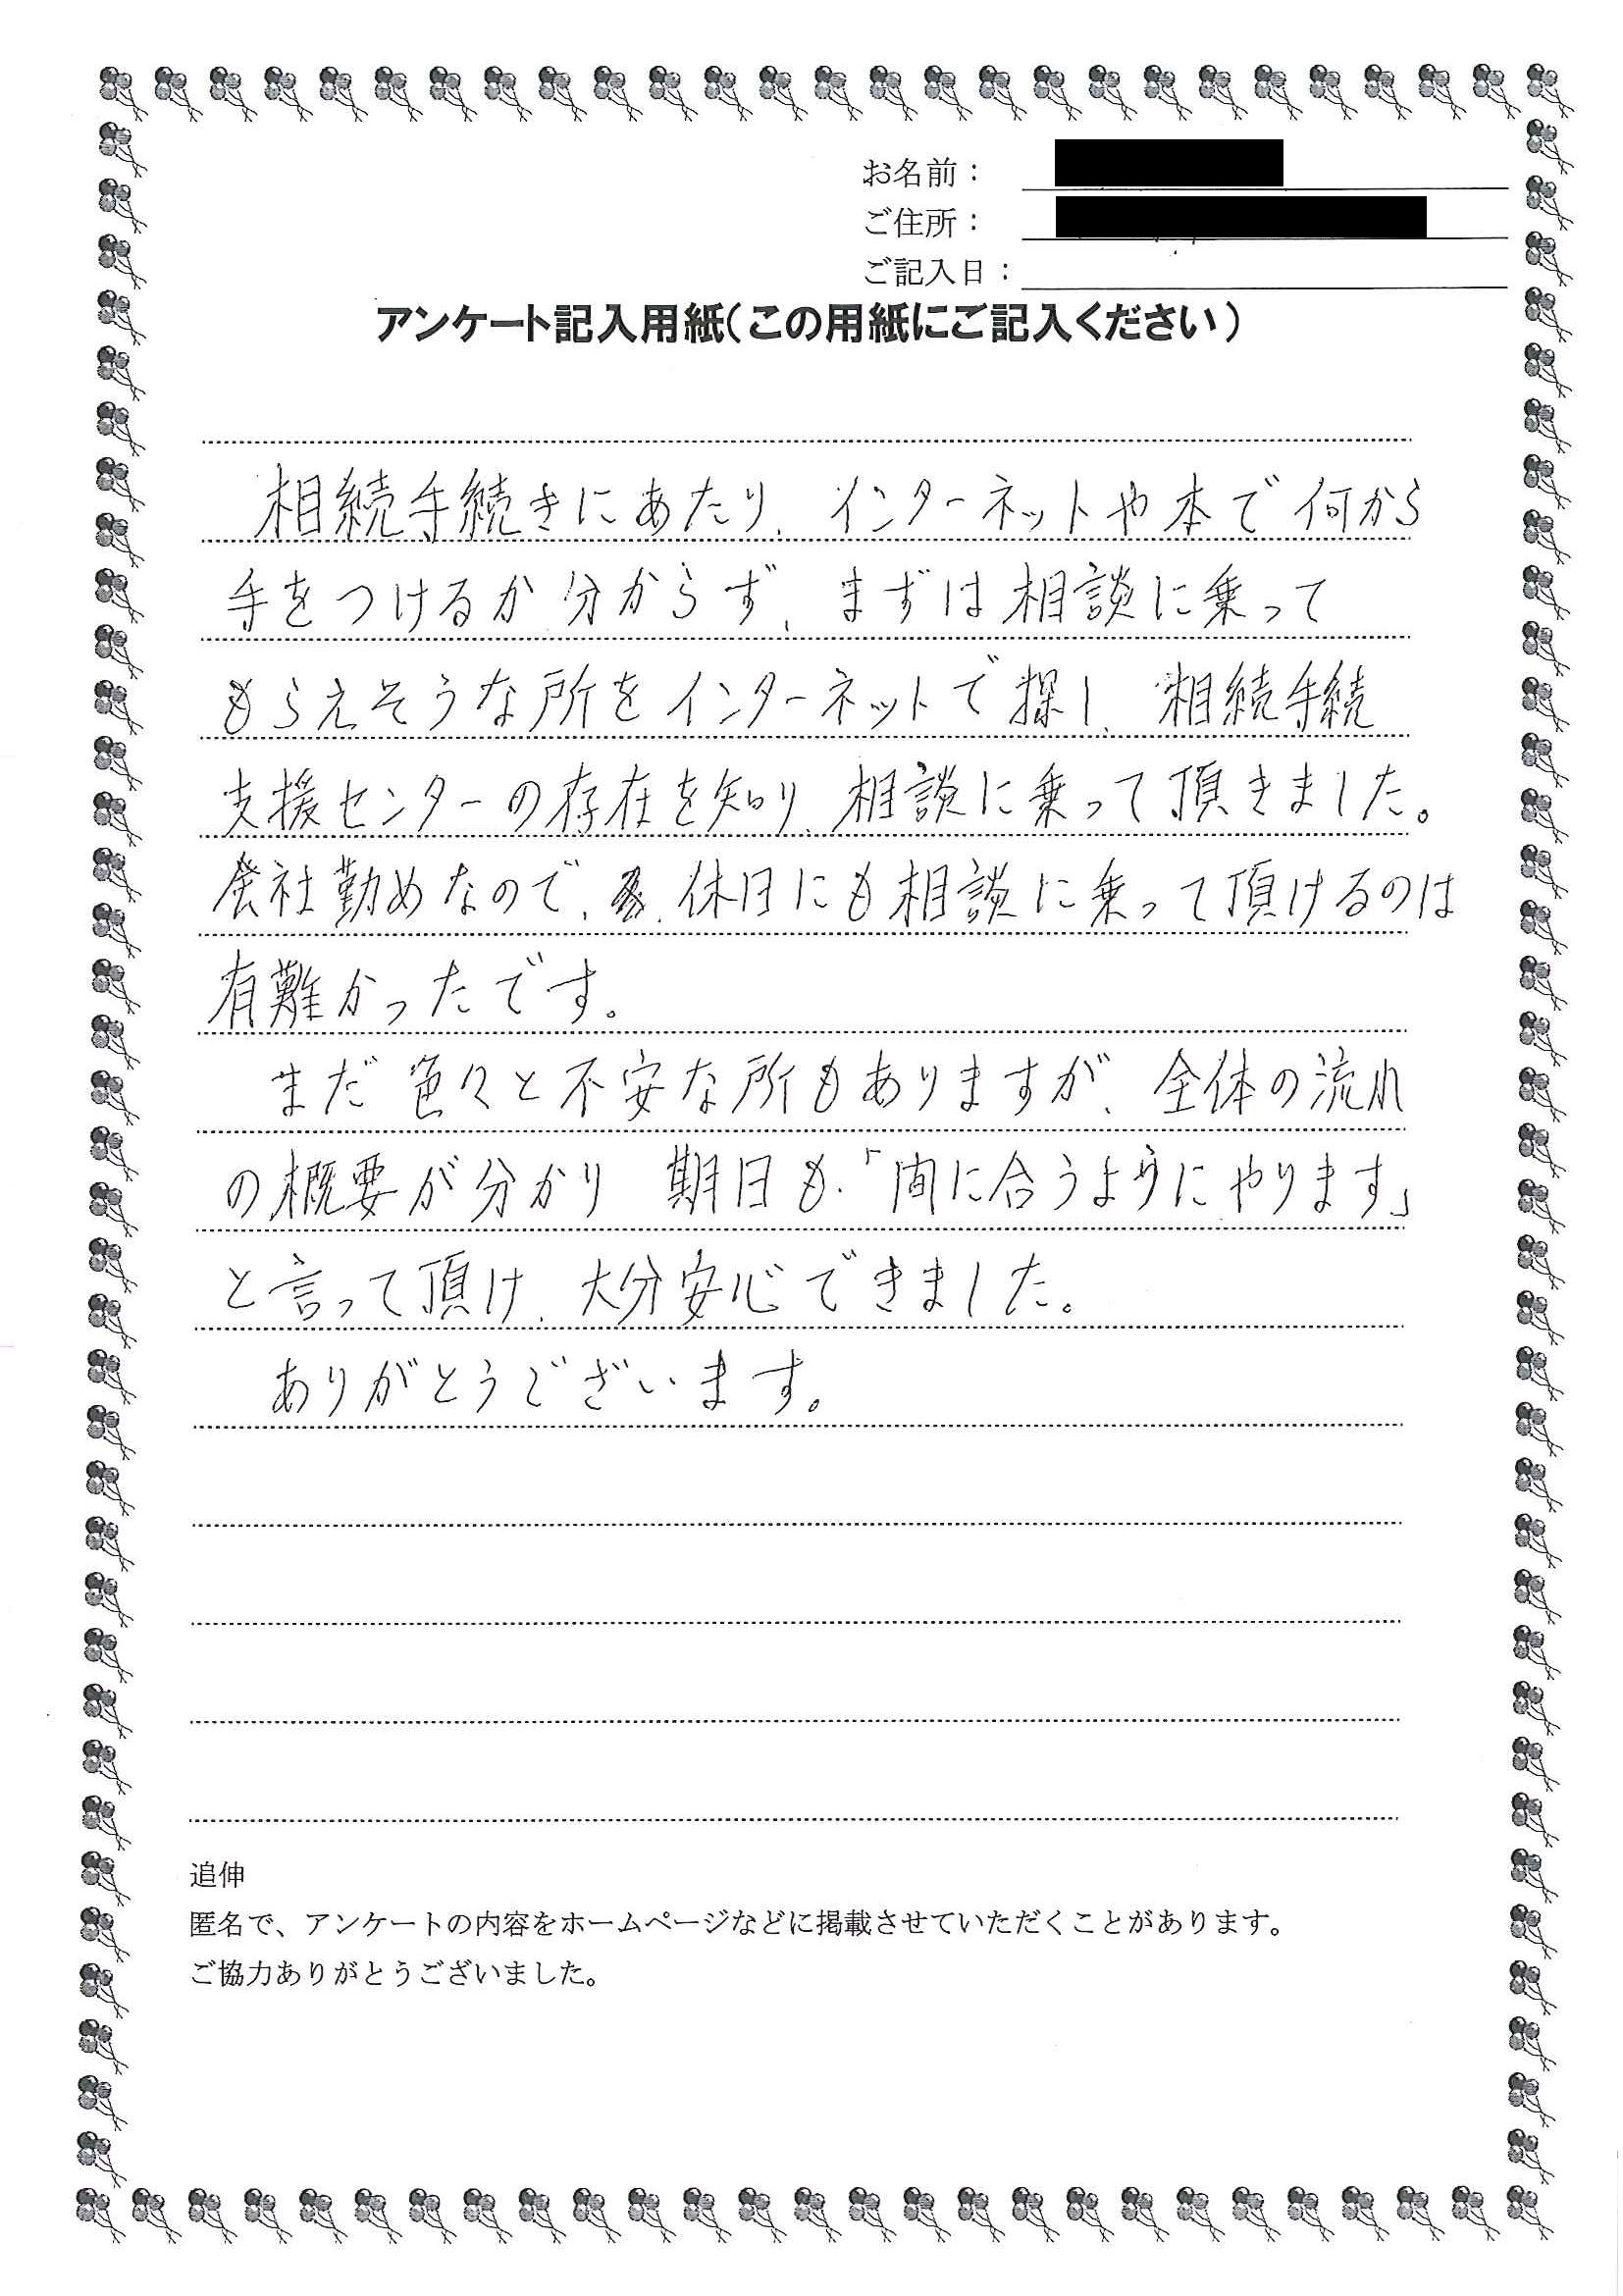 お名前：
ご住所：
ご記入日：
アンケート記入用紙（この用紙にご記入ください）
相続手続きにあたり、インターネットや本で何から
手をつけるか分からず、まずは相談に乗って
もらえそうな所をインターネットで探し、相続手続
支援センターの存在を知り、相談に乗って頂きました。
会社勤めなので、休日にも相談に乗って頂けるのは
有難かったです。
まだ色々と不安な所もありますが、全体の流れ
の概要が分かり 期日も「間に合うようにやります」
と言って頂け、大分安心できました。
ありがとうございます。
追伸
匿名で、アンケートの内容をホームページなどに掲載させていただくことがあります。
ご協力ありがとうございました。